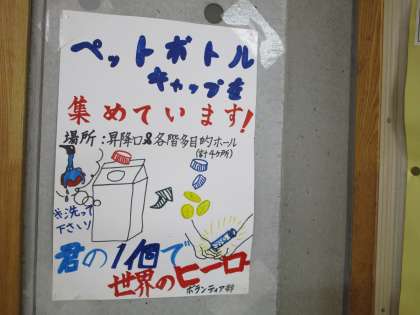 ペットボトル
キャップを
集めています!
場所:昇降口&各階多目的ホール
(計4ケ所)
※洗って
下さい♪
君の1個で
世界のヒーロー
ボランティア部